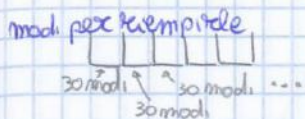 modi per riempirle
30 modi 30 modi ...
30 modi